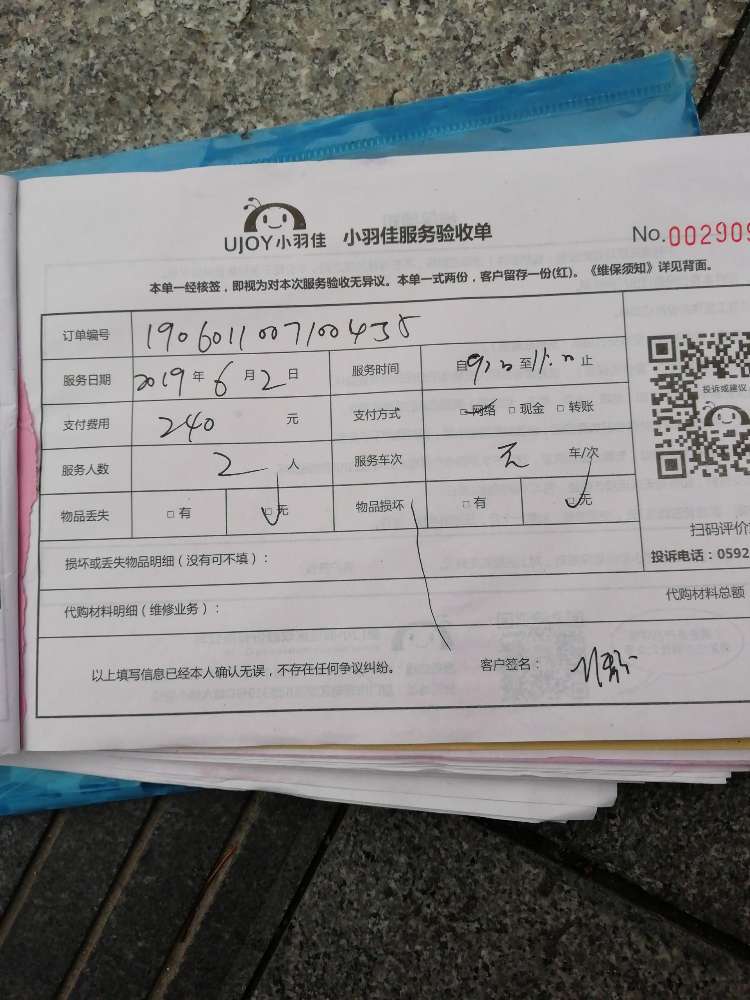 UJOY小羽佳 小羽佳服务验收单 No.002909
本单一经核签，即视为对本次服务验收无异议。本单一式两份，客户留存一份(红)。《维保须知》详见背面。
订单编号 1906011007100435
服务日期 2019年6月2日 服务时间 自9:00至11:00止
支付费用 240 元 支付方式 □网络 □现金 □转账
服务人数 2 人 服务车次 无 车/次
物品丢失 □有 □无 物品损坏 □有 □无
投诉或建议
扫码评价
损坏或丢失物品明细（没有可不填）：
投诉电话：0592
代购材料明细（维修业务）： 代购材料总额
以上填写信息已经本人确认无误，不存在任何争议纠纷。 客户签名：